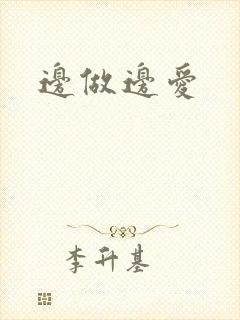 邊做邊愛
李升基